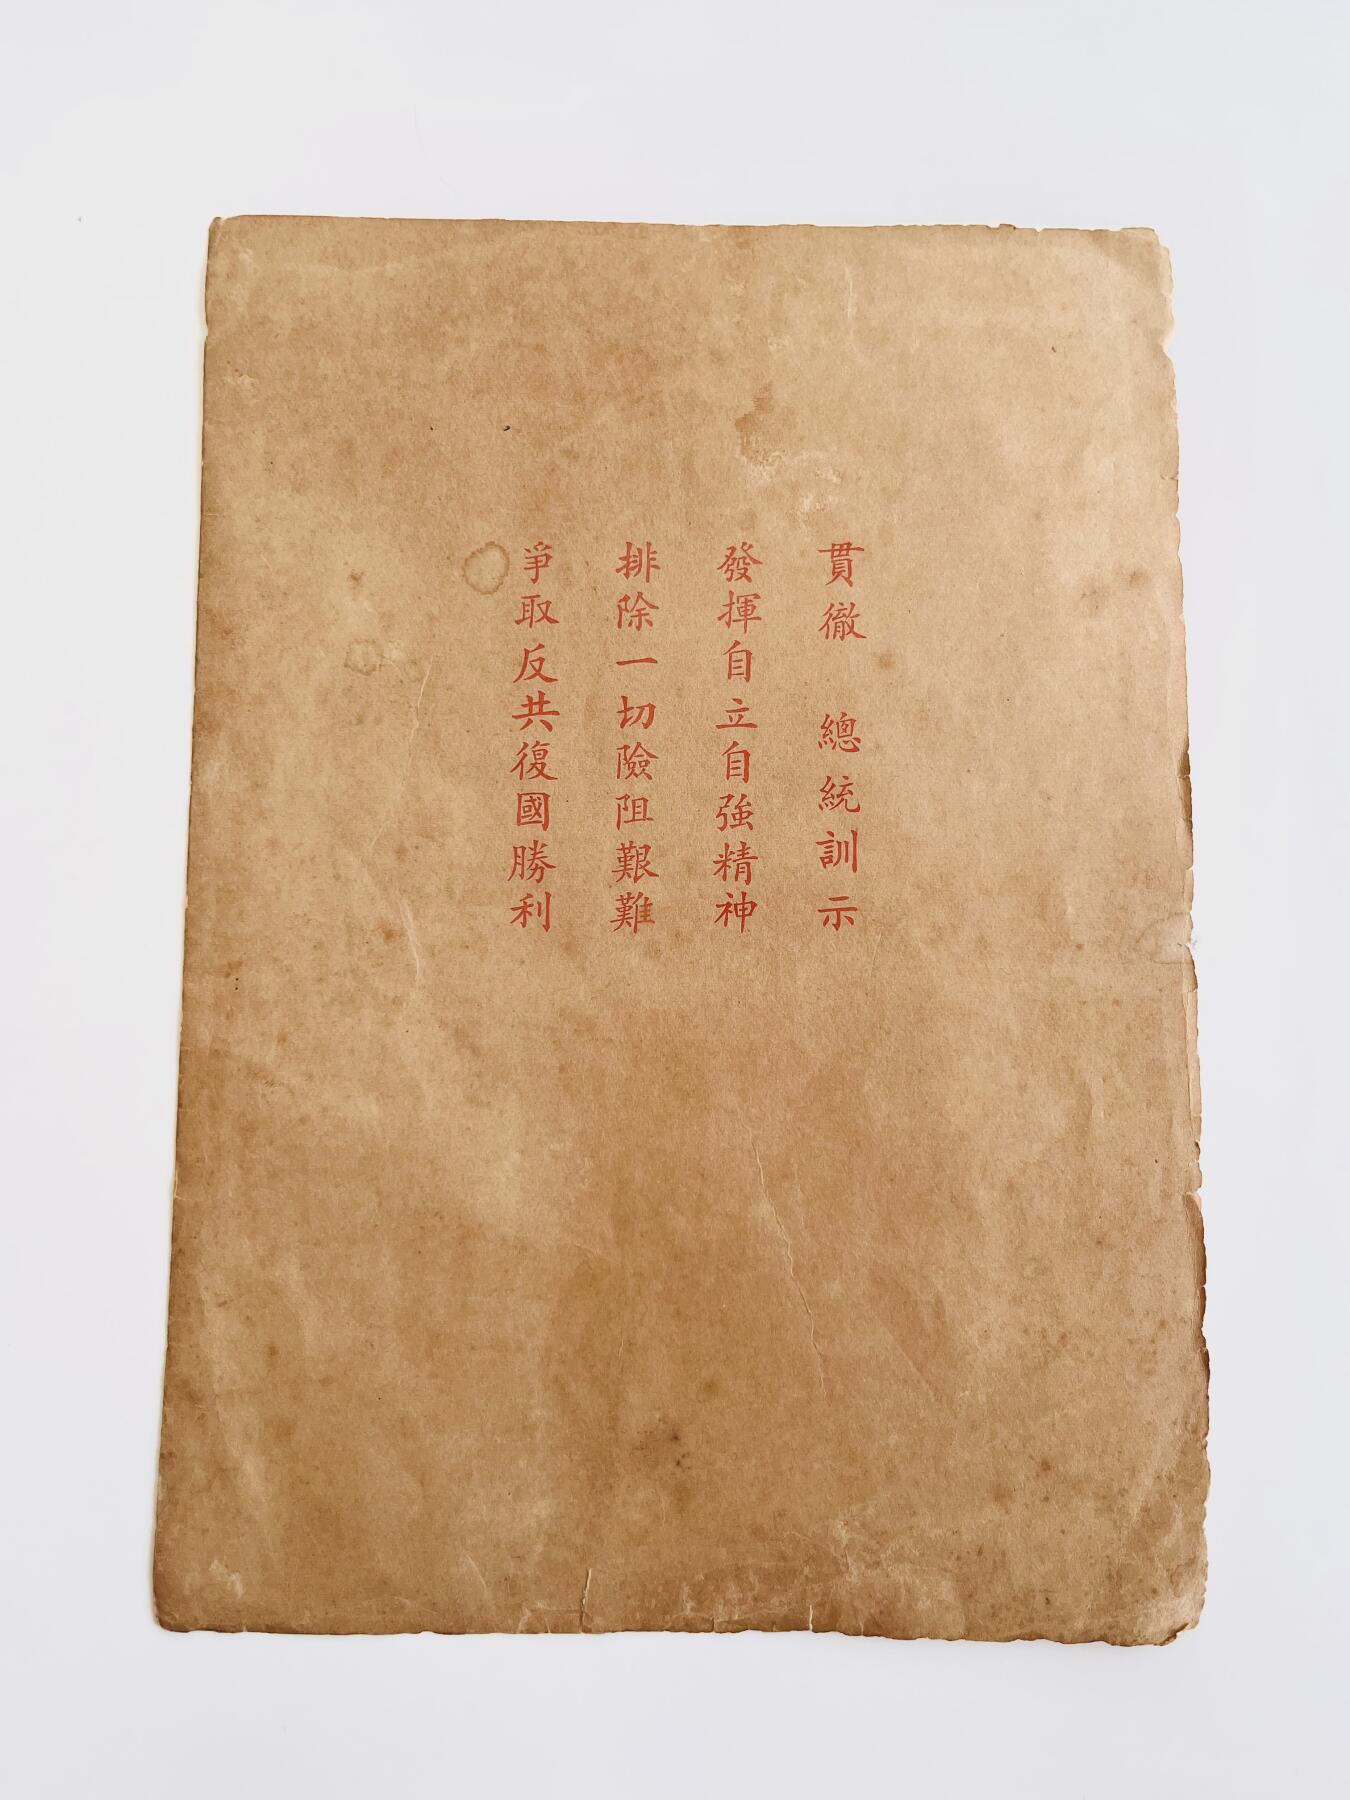 貫徹　總統訓示
發揮自立自強精神
排除一切險阻艱難
爭取反共復國勝利